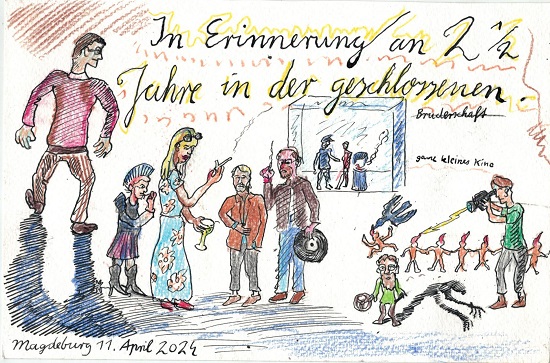 In Erinnerung an 2 1/2
Jahre in der geschlossenen.
Bruderschaft
ganz kleines Kino
Magdeburg 11. April 2024